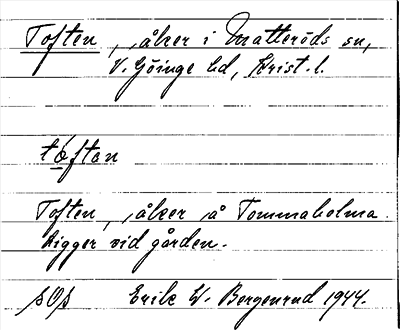 Toften, åker i Matteröds sn,
V. Göinge hd, Krist. l.
tåftən
Toften, åker å Tommaholma.
Ligger vid gården.
sOs Erik W. Bergenrud 1944.